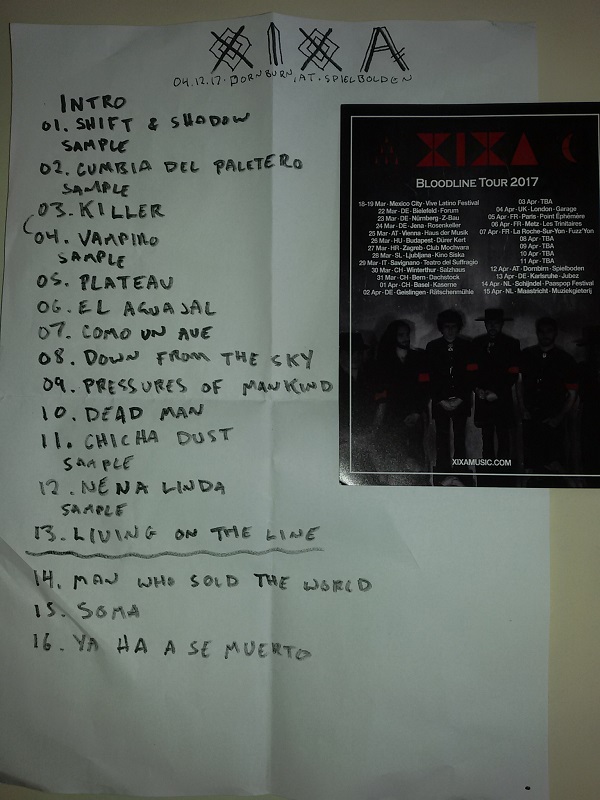 XIXA
04.12.17. DORNBURN, AT. SPIELBOLDEN
INTRO
01. SHIFT & SHADOW
SAMPLE
02. CUMBIA DEL PALETERO
SAMPLE
03. KILLER
04. VAMPIRO
SAMPLE
05. PLATEAU
06. EL AGUAJAL
07. COMO UN AVE
08. DOWN FROM THE SKY
09. PRESSURES OF MANKIND
10. DEAD MAN
11. CHICHA DUST
SAMPLE
12. NENA LINDA
SAMPLE
13. LIVING ON THE LINE
14. MAN WHO SOLD THE WORLD
15. SOMA
16. YA HA A SE MUERTO
XIXA
BLOODLINE TOUR 2017
18-19 Mar · Mexico City · Vive Latino Festival
22 Mar · DE · Bielefeld · Forum
23 Mar · DE · Nürnberg · Z-Bau
24 Mar · DE · Jena · Rosenkeller
25 Mar · AT · Vienna · Haus der Musik
26 Mar · HU · Budapest · Dürer Kert
27 Mar · HR · Zagreb · Club Mochvara
28 Mar · SL · Ljubljana · Kino Siska
29 Mar · IT · Savignano · Teatro del Suffragio
30 Mar · CH · Winterthur · Salzhaus
31 Mar · CH · Bern · Dachstock
01 Apr · CH · Basel · Kaserne
02 Apr · DE · Geislingen · Rätschenmühle
03 Apr · TBA
04 Apr · UK · London · Garage
05 Apr · FR · Paris · Point Éphémère
06 Apr · FR · Metz · Les Trinitaires
07 Apr · FR · La Roche-Sur-Yon · Fuzz'Yon
08 Apr · TBA
09 Apr · TBA
10 Apr · TBA
11 Apr · TBA
12 Apr · AT · Dornbirn · Spielboden
13 Apr · DE · Karlsruhe · Jubez
14 Apr · NL · Schijndel · Paaspop Festival
15 Apr · NL · Maastricht · Muziekgieterij
XIXAMUSIC.COM